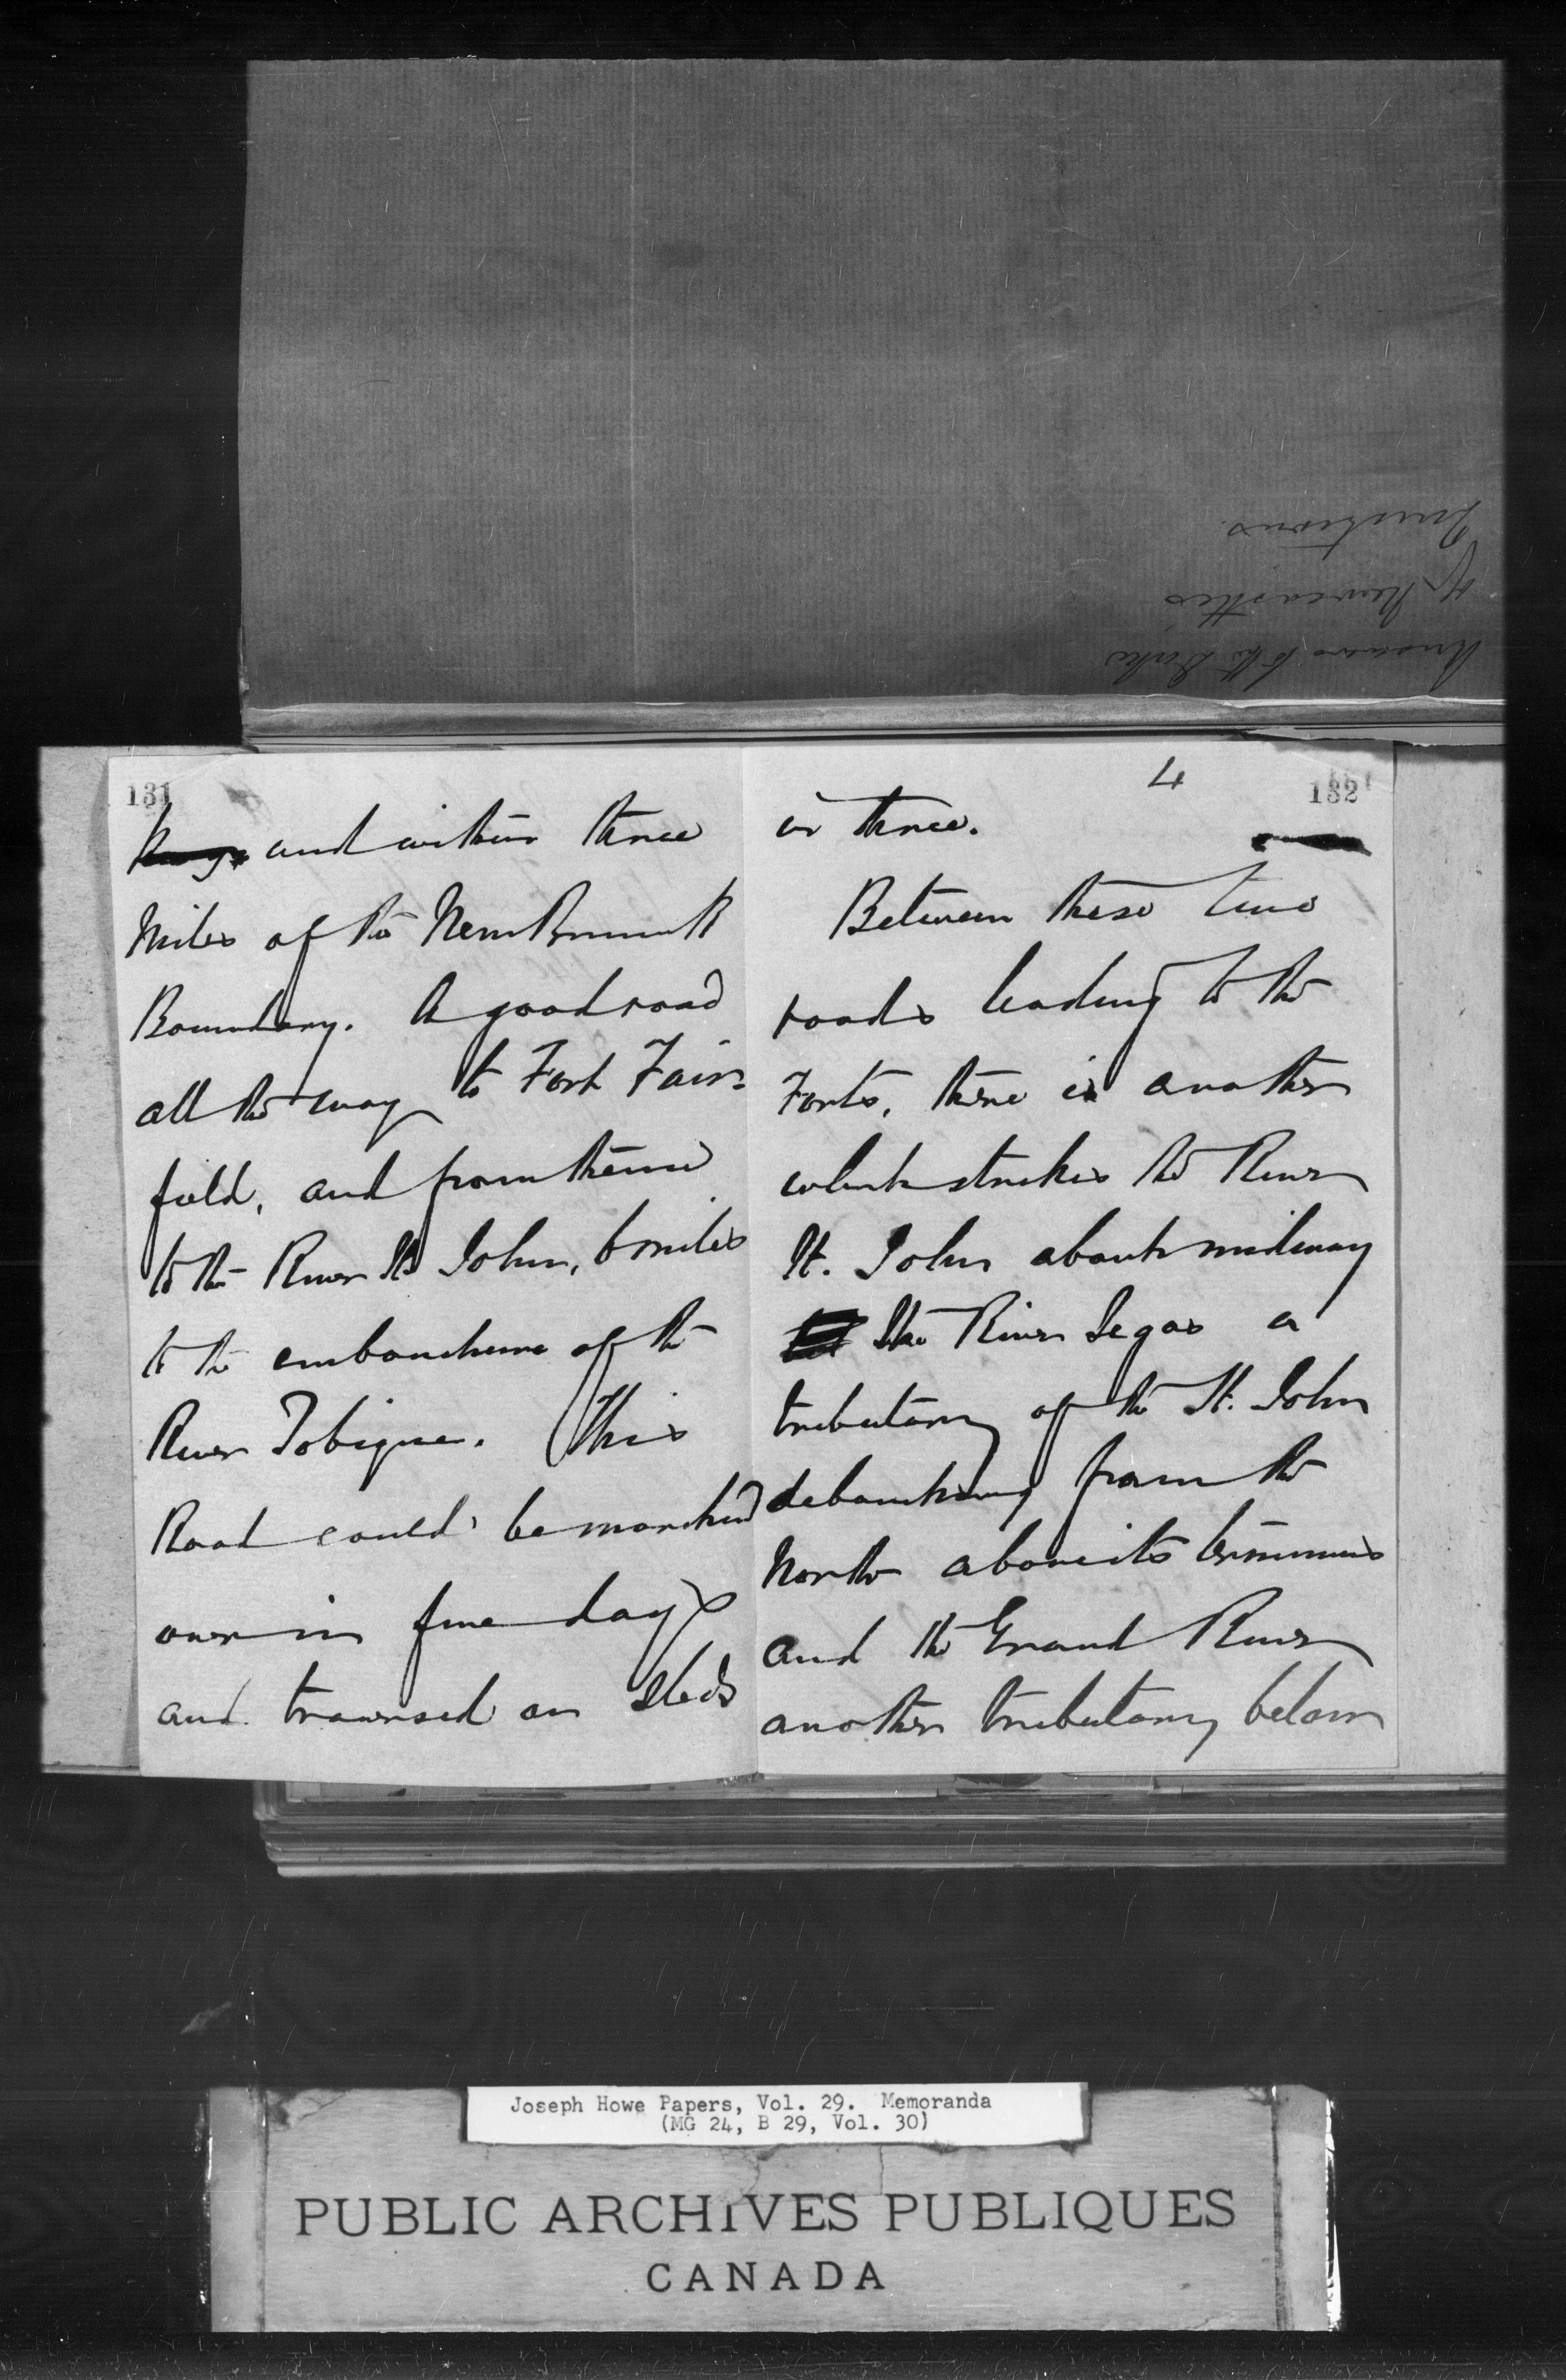 Answers to the Duke
of Newcastles
Questions.
131
and within three
Miles of the New Brunswk
Boundary. A good road
all the way to Fort Fair-
field, and from thence
to the River St John, 6 miles
to the embouchure of the
River Tobique. This
Road could be marched
over in five days
and traversed on sleds
4
132
in three.
Between these two
roads leading to the
Forts, there is another
which strikes the River
St. John about midway
the River Segas a
tributary of the St. John
debouching from the
North above its terminus
and the Grand River
another tributary below
Joseph Howe Papers, Vol. 29. Memoranda
(MG 24, B 29, Vol. 30)
PUBLIC ARCHIVES PUBLIQUES
CANADA